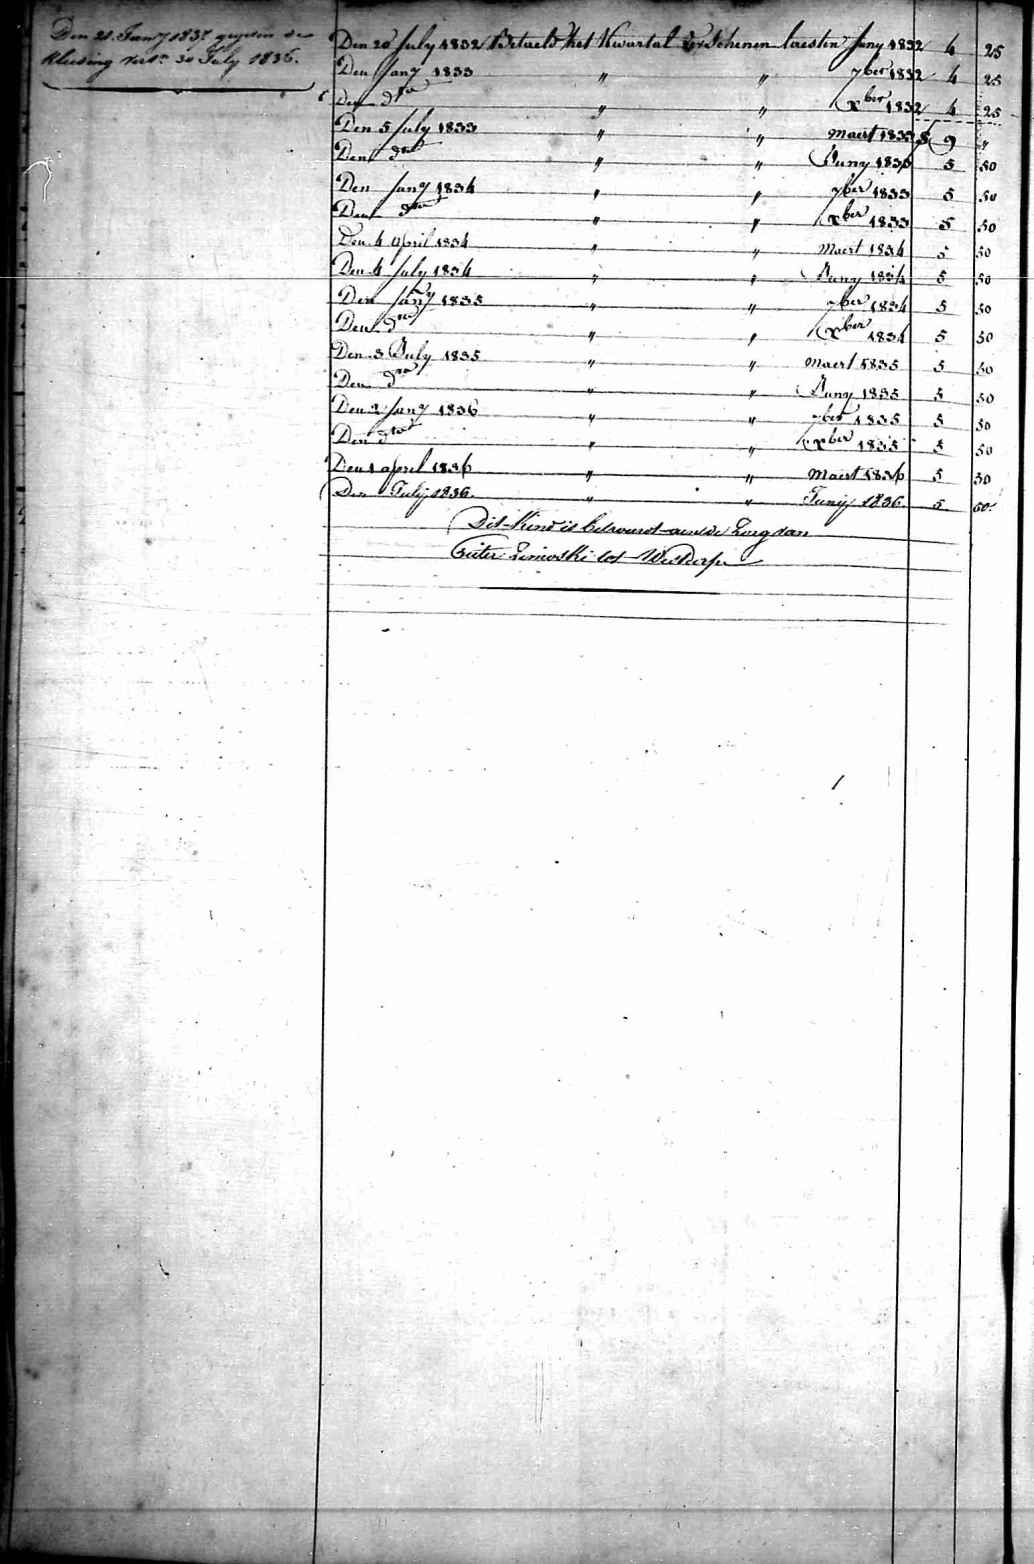 Den 21 Jany 1837 gegeven de
Kleeding vers. 30 July 1836.
Den 20 July 1832 Betaeld het Kwartal Verschenen laesten Juny 1832 4 25
Den Jany 1833 " " 7ber 1832 4 25
Den dto " " Xber 1832 4 25
Den 5 July 1833 " " Maert 1833 9 "
Den dto " " Juny 1833 5 50
Den Jany 1834 " " 7ber 1833 5 50
Den dto " " Xber 1833 5 50
Den 4 April 1834 " " Maert 1834 5 50
Den 4 July 1834 " " Juny 1834 5 50
Den Jany 1835 " " 7ber 1834 5 50
Den dto " " Xber 1834 5 50
Den 3 July 1835 " " Maert 1835 5 50
Den dto " " Juny 1835 5 50
Den 2 Jany 1836 " " 7ber 1835 5 50
Den dto " " Xber 1835 5 50
Den 1 april 1836 " " Maert 1836 5 50
Den July 1836 " " Junij 1836 5 50
Dit Kind is betrouwd aen de Zorg van
Pieter Zemoski tot Westdorpe